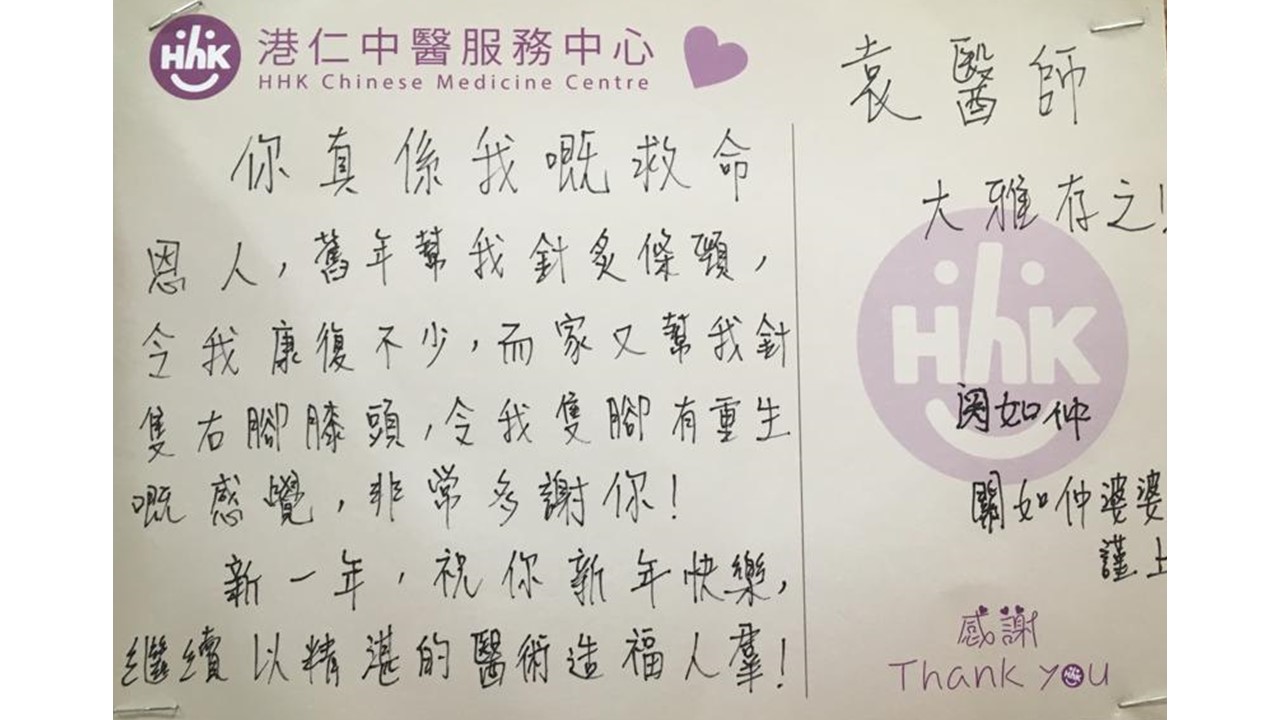 HhK
港仁中醫服務中心
HHK Chinese Medicine Centre
你真係我嘅救命
恩人，舊年幫我針炙條頸，
令我康復不少，而家又幫我針
隻右腳膝頭，令我隻腳有重生
嘅感覺，非常多謝你！
新一年，祝你新年快樂，
繼續以精湛的醫術造福人羣！
袁醫師
大雅存之！
HhK
如仲
關如仲婆婆
謹上
感謝
Thank you